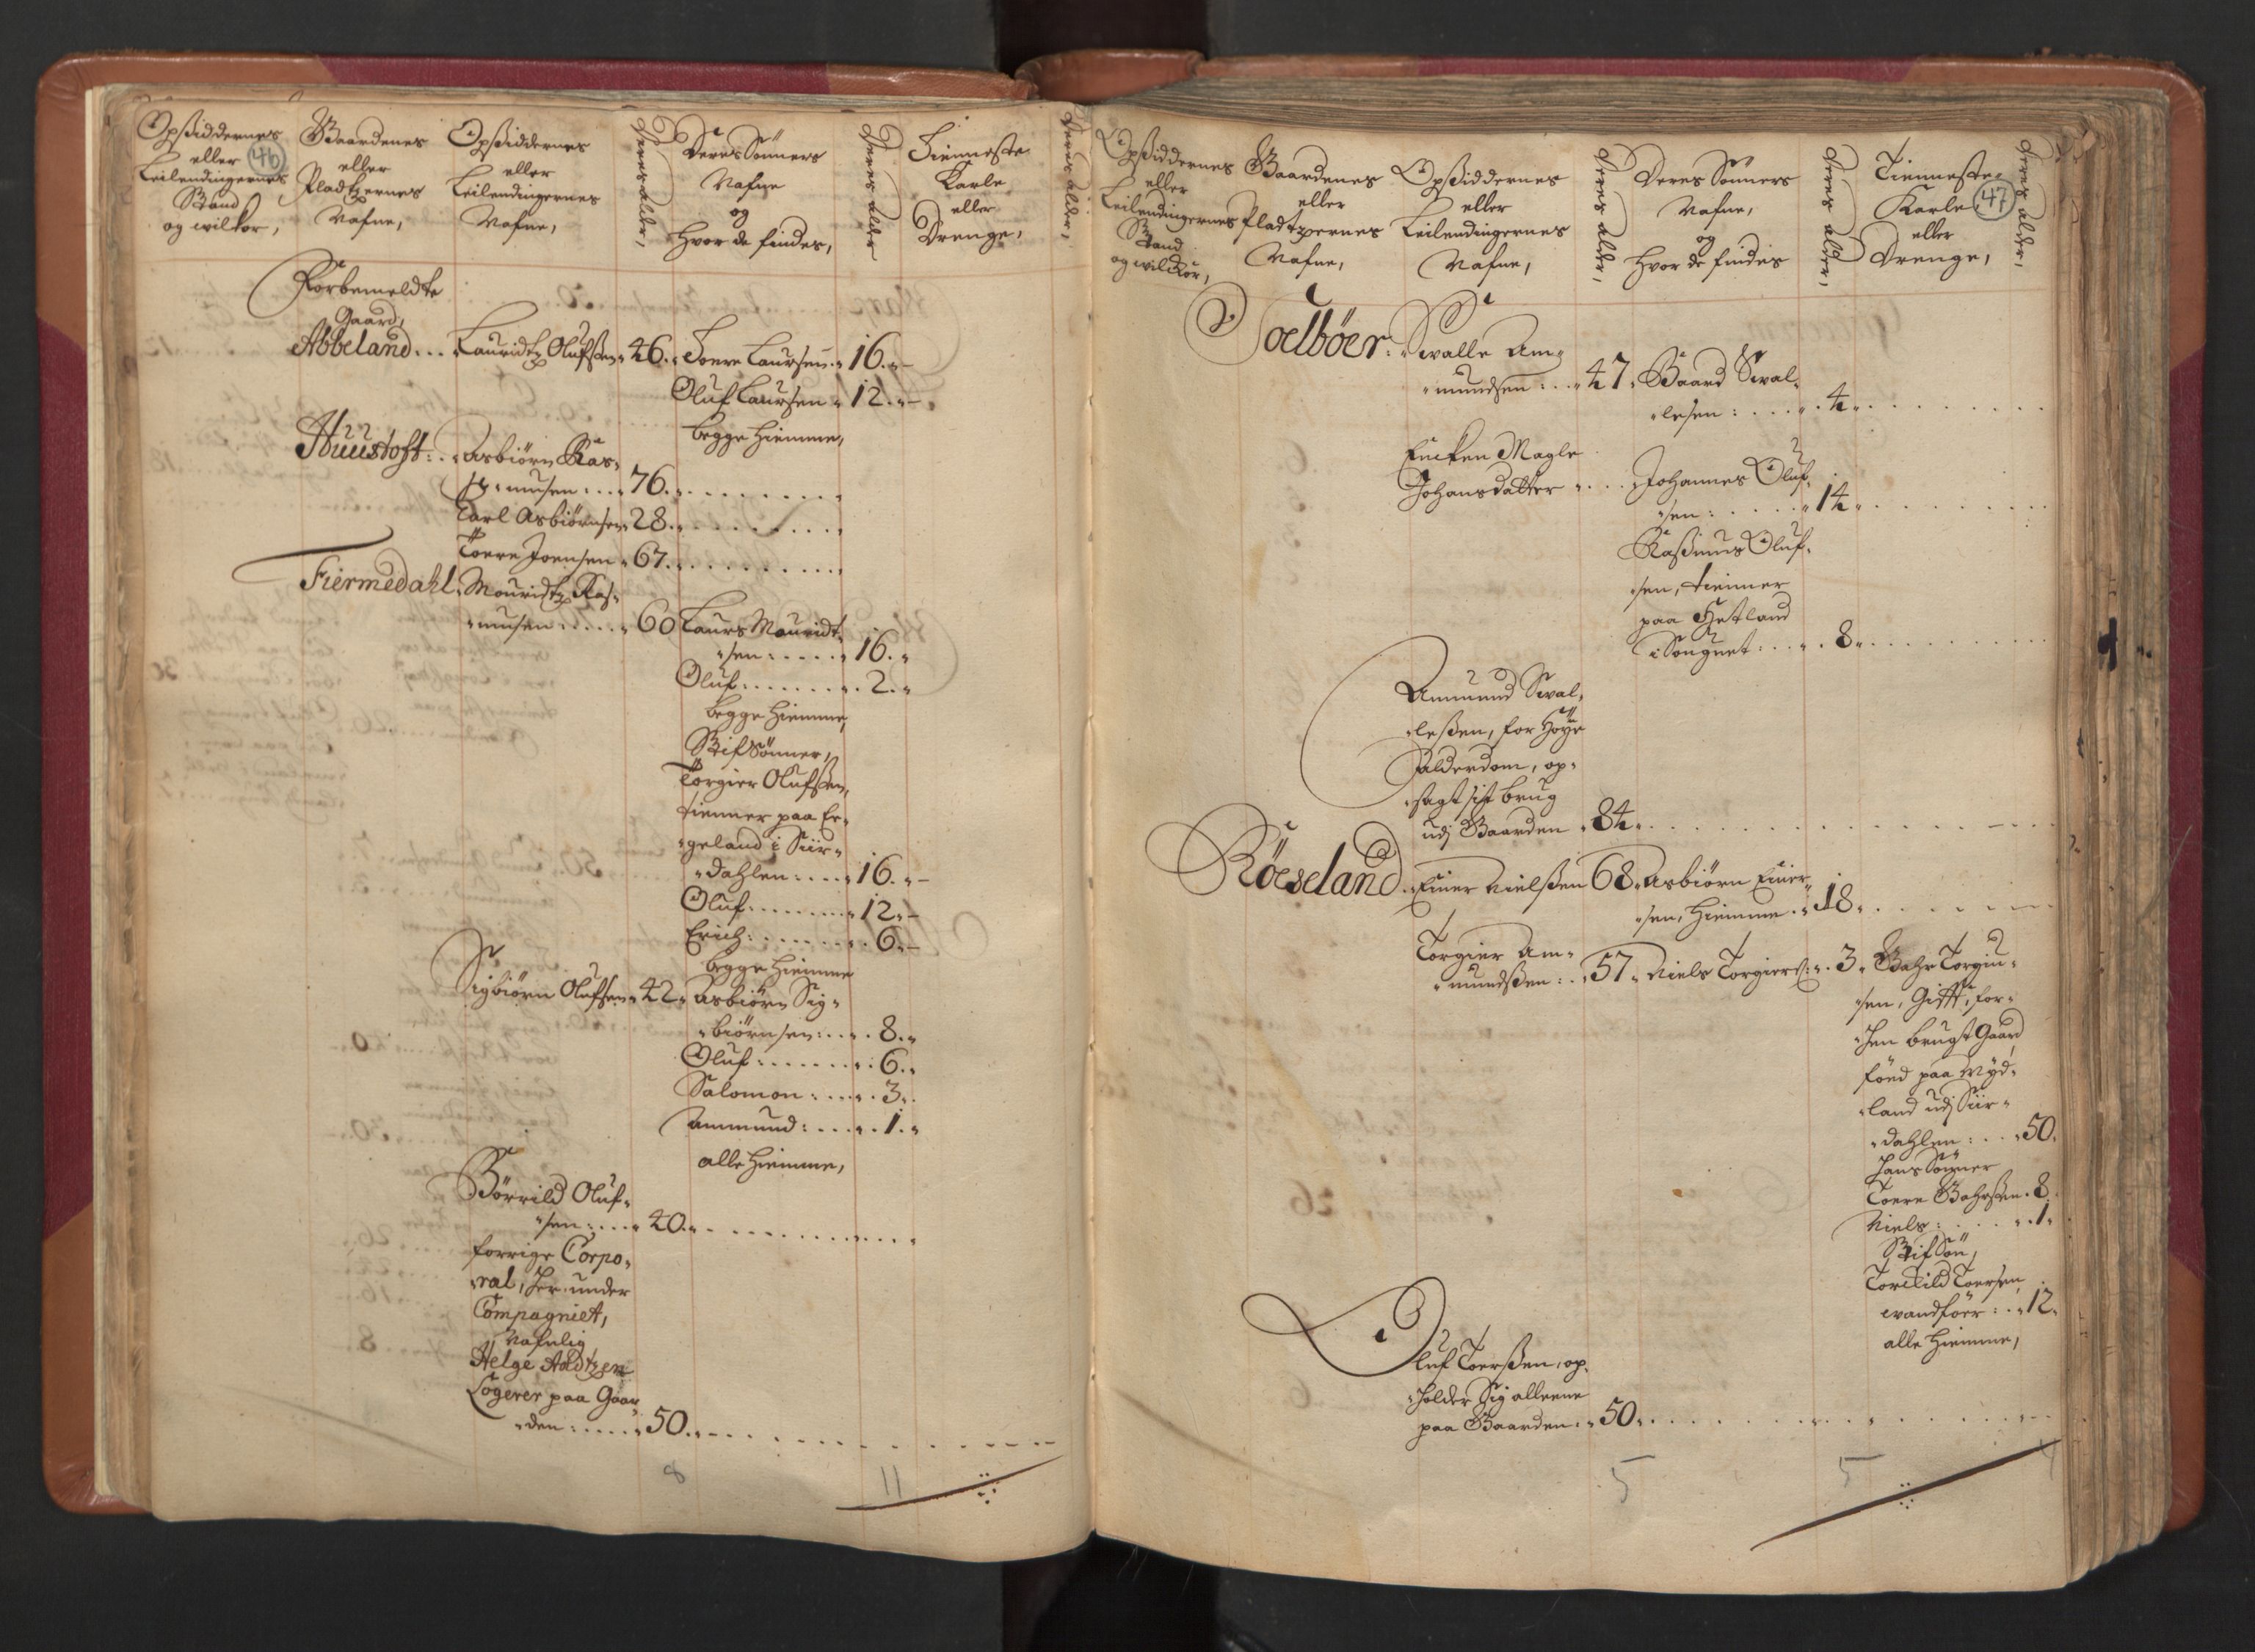 Opsiddernes
eller
Leilendingernes
Stand
og wilkor,
46
Gaardenes
eller
Pladtzernes
Nafne,
Opsiddernes
eller
Leilendingernes
Nafne,
Deres alder,
Deres Sönners
Nafne
og
hvor de findes,
Deres alder
Tienneste
Karle
eller
Drenge,
Deres alder,
Forbemeldte
Gaard,
Abbeland... Lauridtz Olufsen 46. Toere Laursen 16.
Oluf Laursen 12.
begge hiemme,
Huustoft: Asbiörn Ras-
musen 76.
Carl Asbiörnsen 28.
Toere Joensen 67.
Fiermedahl. Mouridtz Ras-
musen 60 Laurs Mouridt-
sen: 16.
Oluf 2.
begge hiemme,
Stifsönner,
Torgier Olufsen,
tienner paa Er-
geland i Siir-
dahlen: 16.
Oluf 12.
Erich: 6.
begge hiemme
Sigbiörn Olufsen 42. Asbiörn Sig-
biörnsen: 8.
Oluf: 6.
Salomon: 3.
Ammund: 1.
alle hiemme,
Börrild Oluf-
sen: 40.
forrige Corpo-
ral, her under
Compagniet,
Nafnlig
Helge Aadtzen
Logerer paa Gaar-
den: 50.
8 11
Opsiddernes
eller
Leilendingernes
Stand
og wilkor,
Gaardenes
eller
Pladtzernes
Nafne,
Opsiddernes
eller
Leilendingernes
Nafne,
Deres alder,
Deres Sönners
Nafne,
og
hvor de findes
Deres alder,
Tienneste
Karle
eller
Drenge,
47
Deres alder,
Toelböer. Swalle Am-
mundsen: 47. Baard Swal-
lesen: 4.
Encken Magle
Johansdatter Johannes Oluf-
sen: 14.
Rasmus Oluf-
sen, tienner
paa Hetland
i Sougnet: 8.
Ammund Swal-
lesen, for höye
alderdom, op-
sagt sit brug
udj Gaarden 84.
Röeseland. Einer Nielsen 68. Asbiörn Einer-
sen, hiemme. 18.
Torgier Am-
mundsen: 57. Niels Torgiers: 3. Bahr Torgiu-
sen, Gifft, for-
hen brugt Gaard
föed paa Wyd-
land udj Siir-
dahlen: 50.
hans Sönner
Toere Bahrsen. 8.
Niels: 1.
Stifsön,
Torkild Toersen
wandföer: 12.
alle hiemme,
Oluf Toersen, op-
holder sig alleene
paa Gaarden. 50.
5 5 4